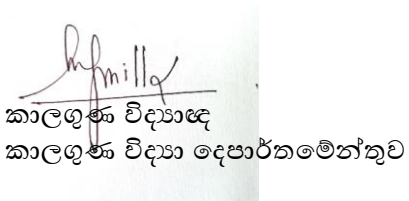 කාලගුණ විද්‍යාඥ
කාලගුණ විද්‍යා දෙපාර්තමේන්තුව